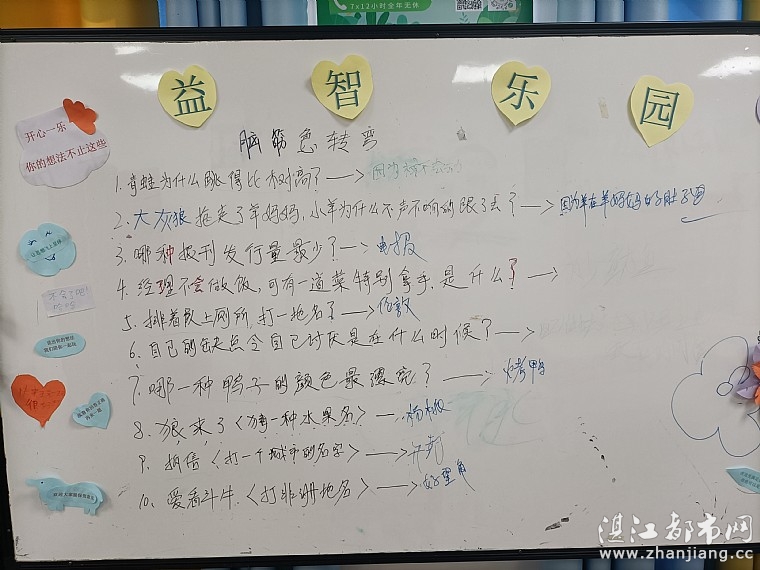 7x12小时全年无休
益 智 乐 园
开心一乐
你的想法不止这些
脑筋急转弯
1.青蛙为什么跳得比树高?→因为树不会
2.大灰狼拖走了羊妈妈,小羊为什么不声不响的跟了去?→因为羊在羊妈妈的肚子里
3.哪种报刊发行量最少?→电报
4.经理不会做饭,可有一道菜特别拿手,是什么?→
5.排着队上厕所,打一地名?→伦敦
6.自己的缺点令自己讨厌是在什么时候?→
7.哪一种鸭子的颜色最漂亮?→烤鸭
8.狼来了〈猜一种水果名〉→杨桃
9.拆信〈打一个城市的名字〉→开封
10.爱看斗牛〈打非洲地名〉→好望角
湛江都市网
www.zhanjiang.cc